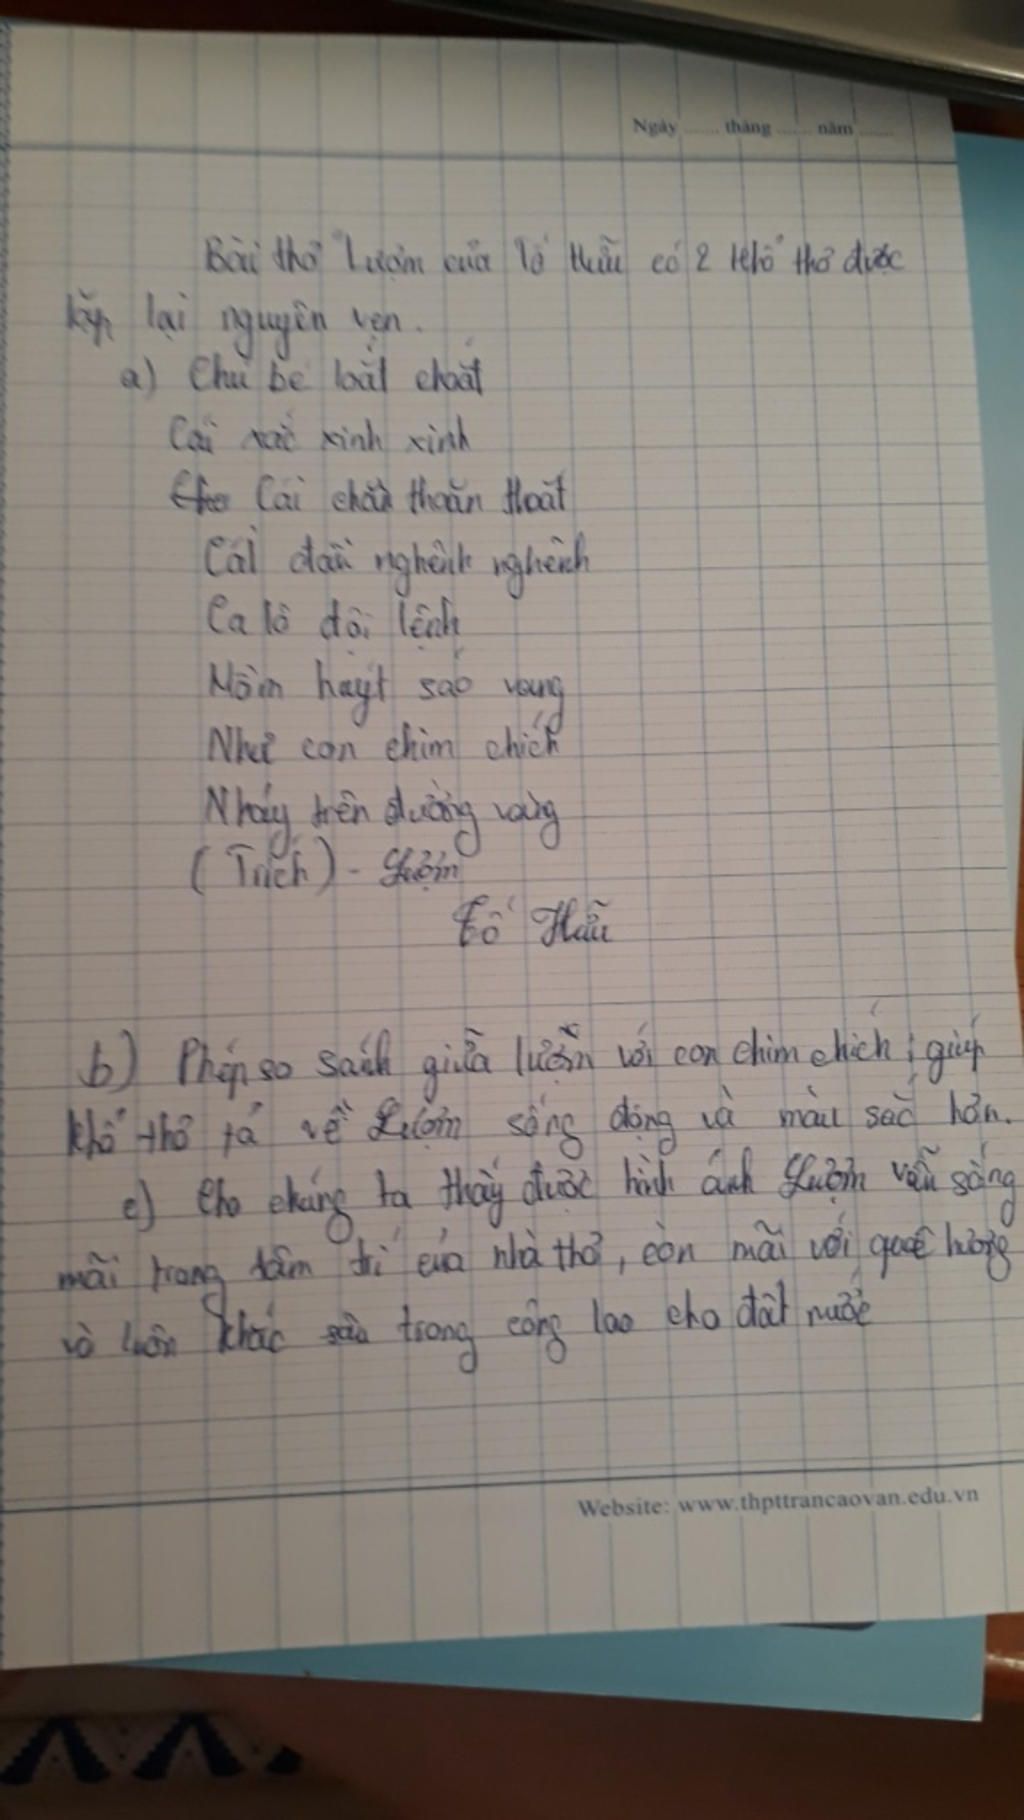 Ngày ....... tháng ....... năm .......
Bài thơ "Lượm của Tố Hữu có 2 khổ thơ được
lặp lại nguyên vẹn.
a) Chú bé loắt choắt
Cái xắc xinh xinh
Cái chân thoăn thoắt
Cái đầu nghênh nghênh
Ca lô đội lệch
Mồm huýt sáo vang
Như con chim chích
Nhảy trên đường vàng
(Trích) - Lượm
Tố Hữu
b) Phép so sánh giữa lượm với con chim chích; giúp
khổ thơ tả về Lượm sống động và màu sắc hơn.
c) Cho chúng ta thấy được hình ảnh Lượm vẫn sống
mãi trong tâm trí của nhà thơ, còn mãi với quê hương
và luôn khắc sâu trong công lao cho đất nước
Website: www.thpttrancaovan.edu.vn